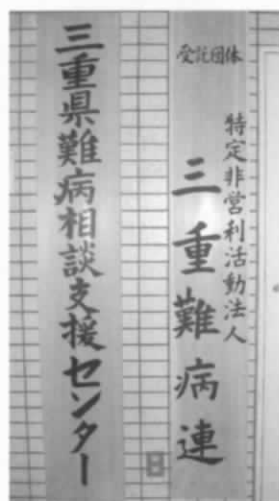 受託団体
特定非営利活動法人
三重難病連
三重県難病相談支援センター